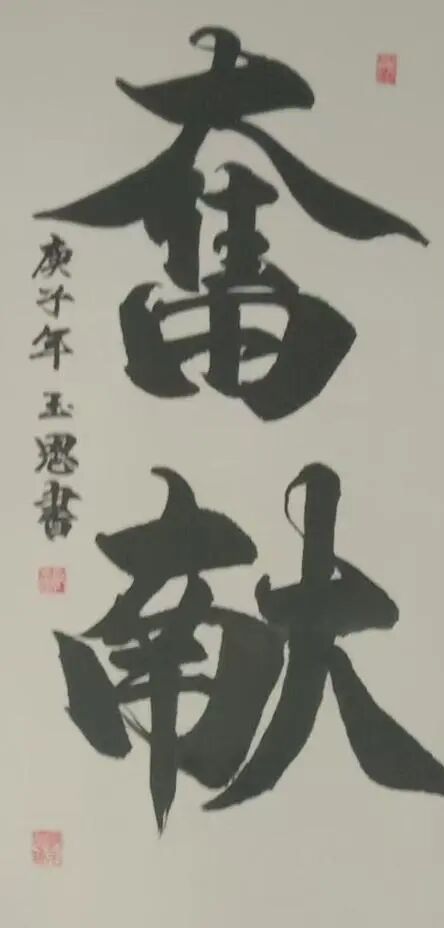 奮献
庚子年 玉恩書